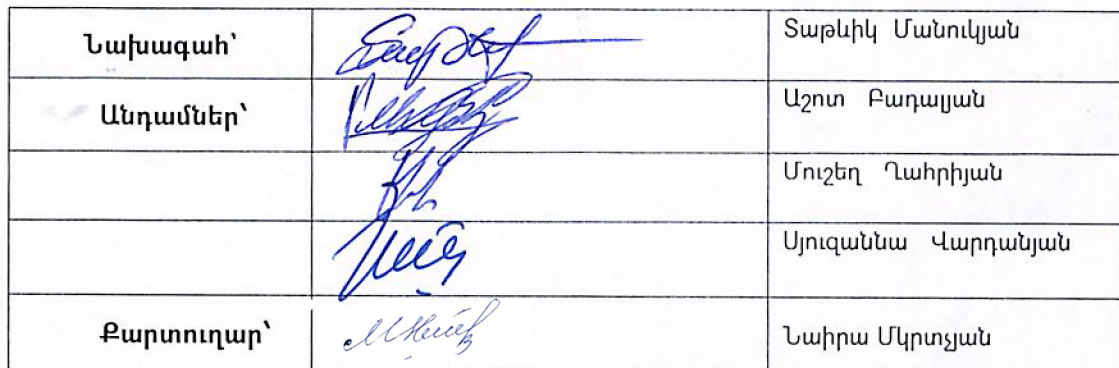 Նախագահ՝ Տաթևիկ Մանուկյան
Անդամներ՝ Աշոտ Բադալյան
Մուշեղ Ղահրիյան
Սյուզաննա Վարդանյան
Քարտուղար՝ Նաիրա Մկրտչյան